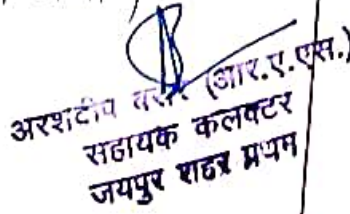 अरशदीप (आर.ए.एस.)
सहायक कलक्टर
जयपुर शहर प्रथम